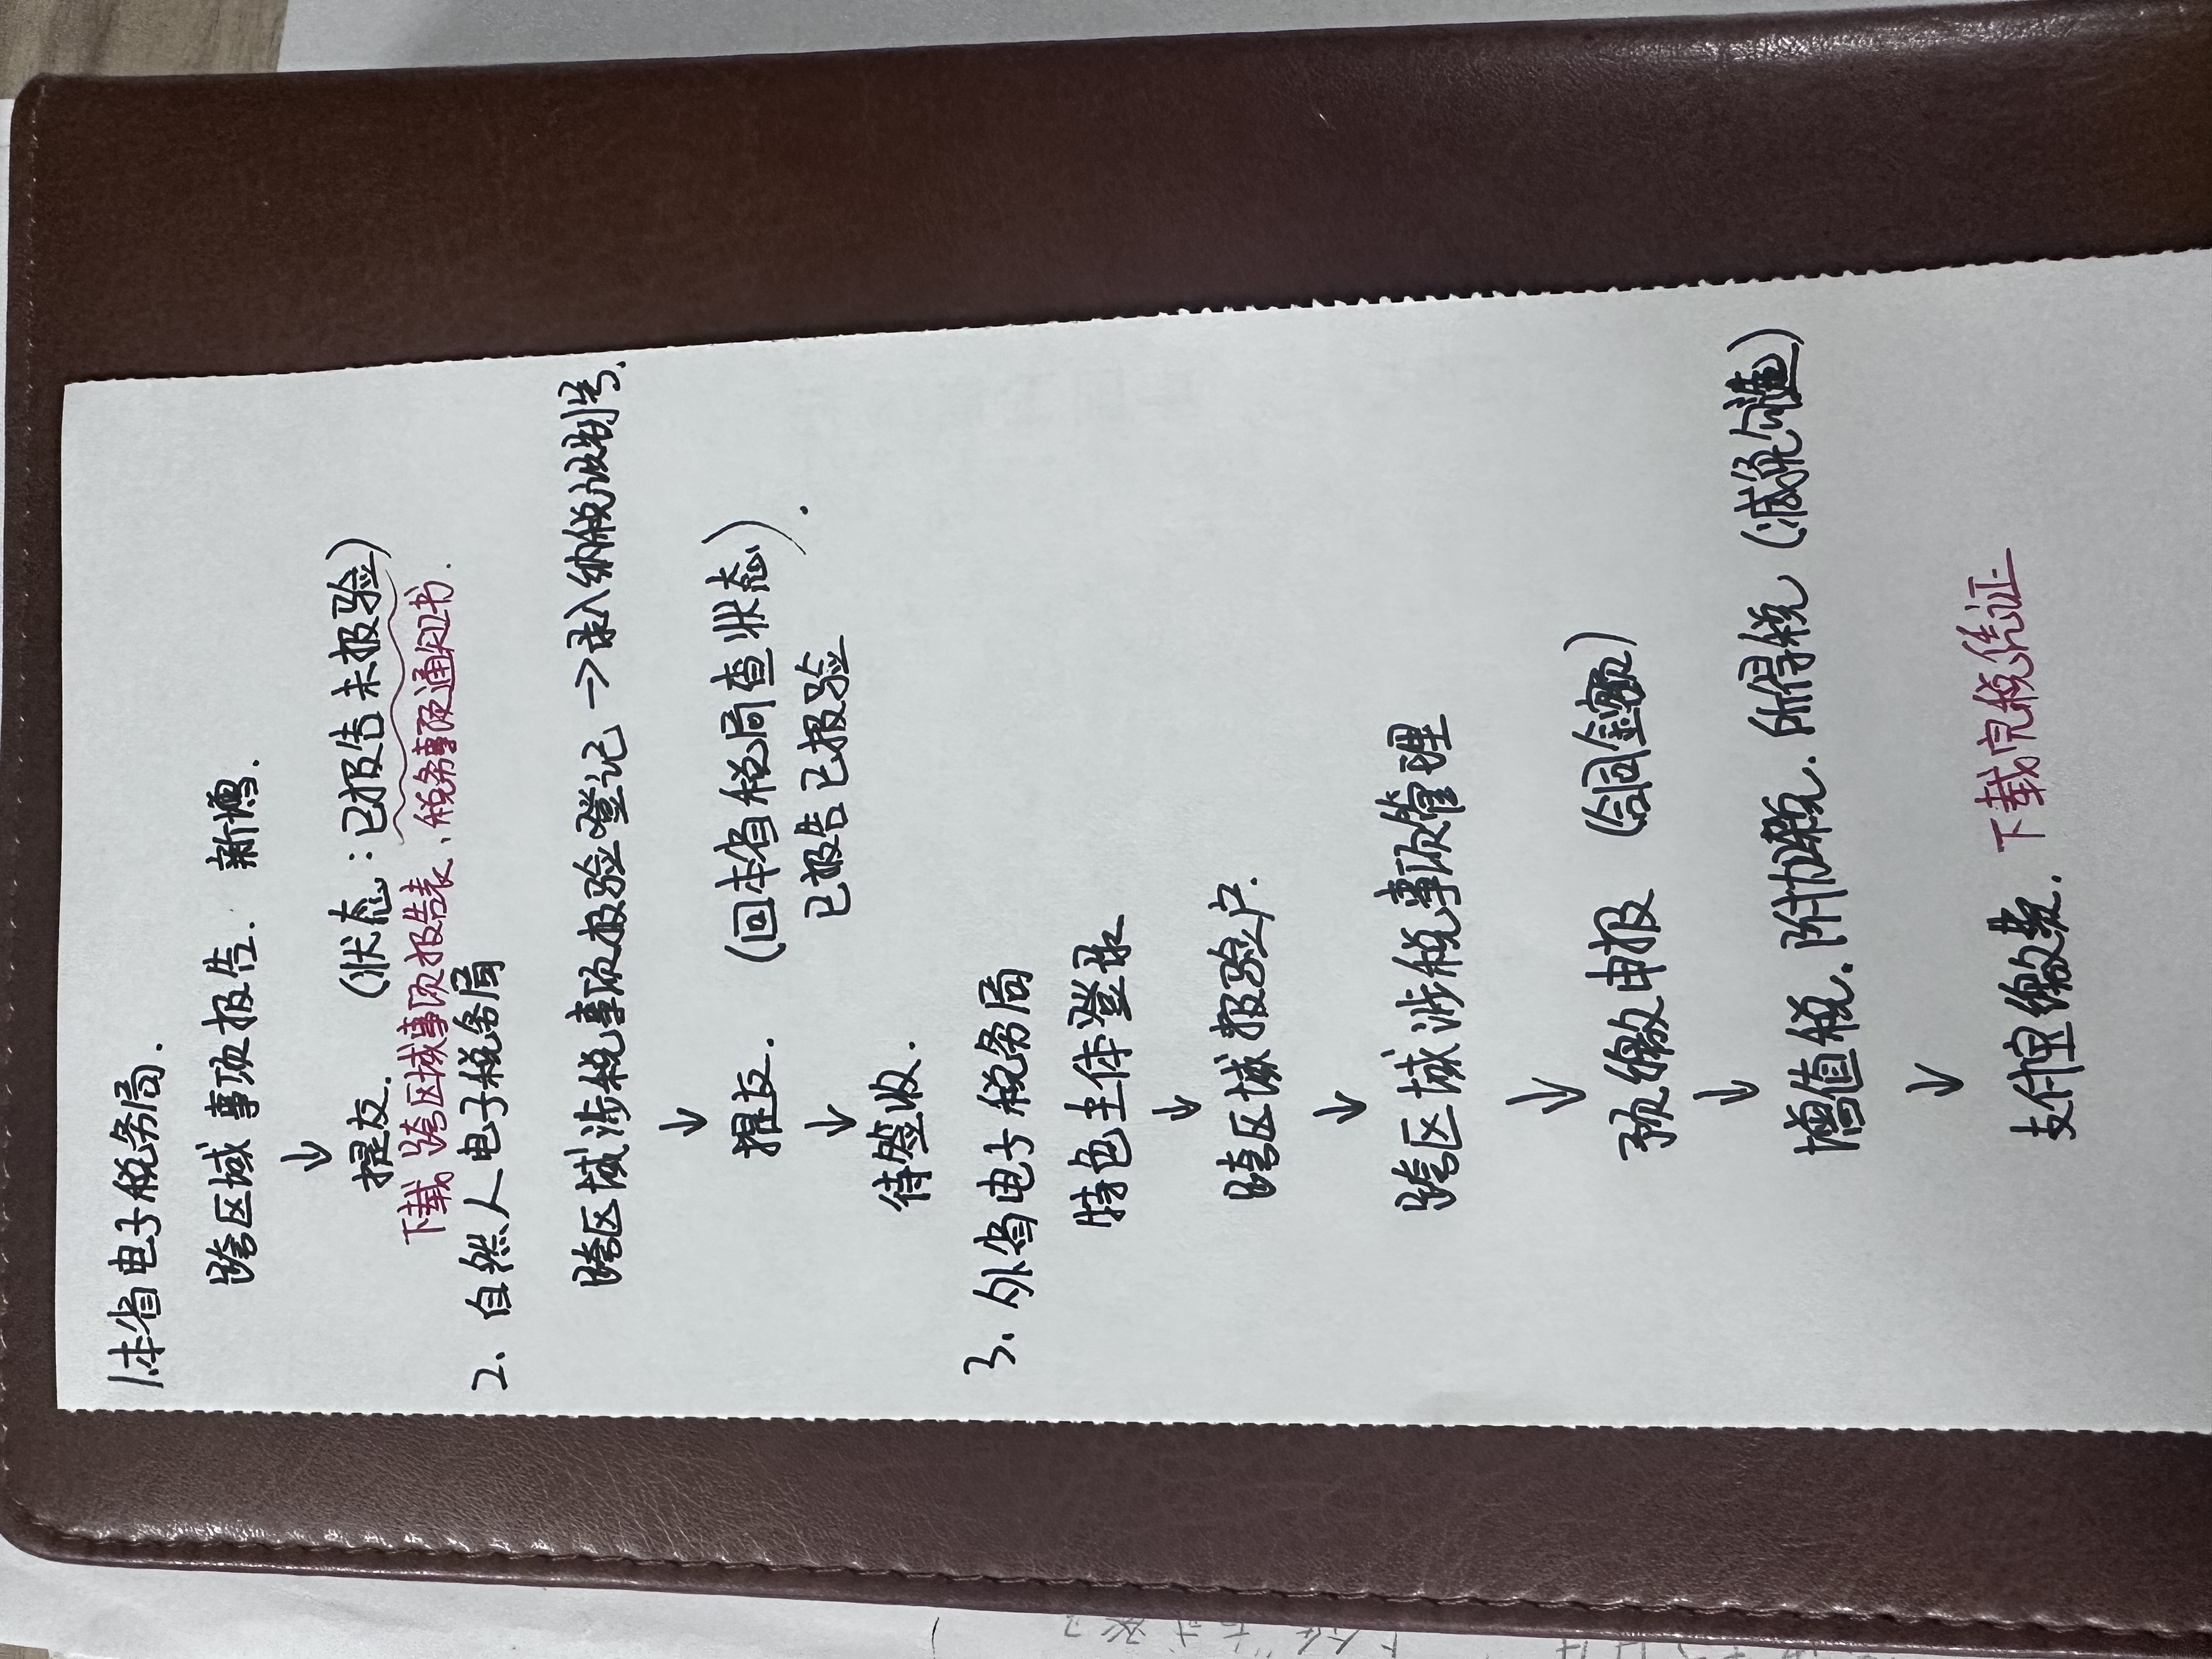 1.本省电子税务局.
跨区域事项报告. 新增.
↓
提交. (状态:已报告未报验)
下载 跨区域事项报告表、税务事项通知书.
2. 自然人电子税务局
跨区域涉税事项报验登记 → 录入纳税识别号.
↓
提交. (回本省税局查状态).
已报告已报验
↓
待签收.
3. 外省电子税务局
特色主体登录
↓
跨区域报验户.
↓
跨区域涉税事项管理
↓
预缴申报 (合同金额)
↓
增值税.附加税.所得税 (减免勾选)
↓
支付宝缴款. 下载完税凭证